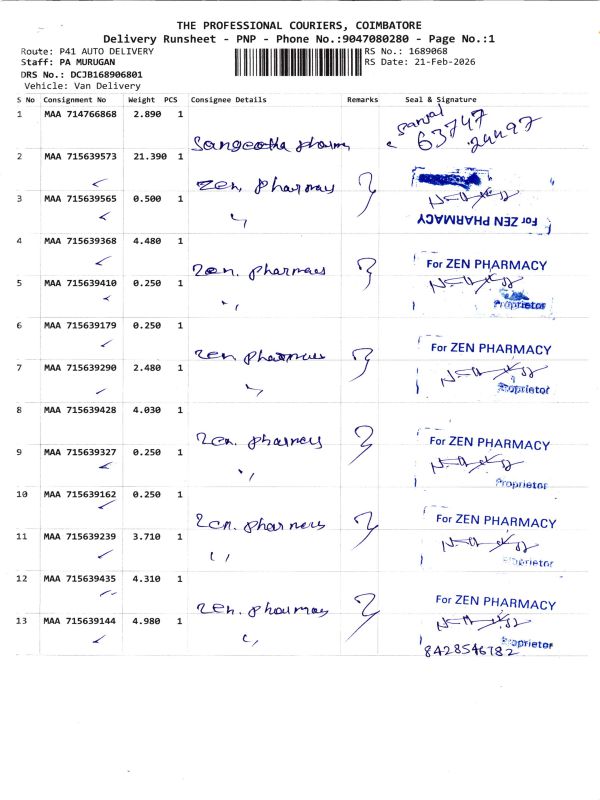 THE PROFESSIONAL COURIERS, COIMBATORE
Delivery Runsheet - PNP - Phone No.:9047080280 - Page No.:1
Route: P41 AUTO DELIVERY RS No.: 1689068
Staff: PA MURUGAN RS Date: 21-Feb-2026
DRS No.: DCJB168906801
Vehicle: Van Delivery
S No Consignment No Weight PCS Consignee Details Remarks Seal & Signature
1 MAA 714766868 2.890 1
63747
24497
Sangeetha pharmacy
2 MAA 715639573 21.390 1
Zen pharmacy
3 MAA 715639565 0.500 1
For ZEN PHARMACY
4 MAA 715639368 4.480 1
Zen. pharmacy For ZEN PHARMACY
5 MAA 715639410 0.250 1
Proprietor
6 MAA 715639179 0.250 1
Zen pharmacy For ZEN PHARMACY
7 MAA 715639290 2.480 1
Proprietor
8 MAA 715639428 4.030 1
Zen. pharmacy For ZEN PHARMACY
9 MAA 715639327 0.250 1
Proprietor
10 MAA 715639162 0.250 1
Zen. pharmacy For ZEN PHARMACY
11 MAA 715639239 3.710 1
Proprietor
12 MAA 715639435 4.310 1
Zen. pharmacy For ZEN PHARMACY
13 MAA 715639144 4.980 1
Proprietor
8428546782